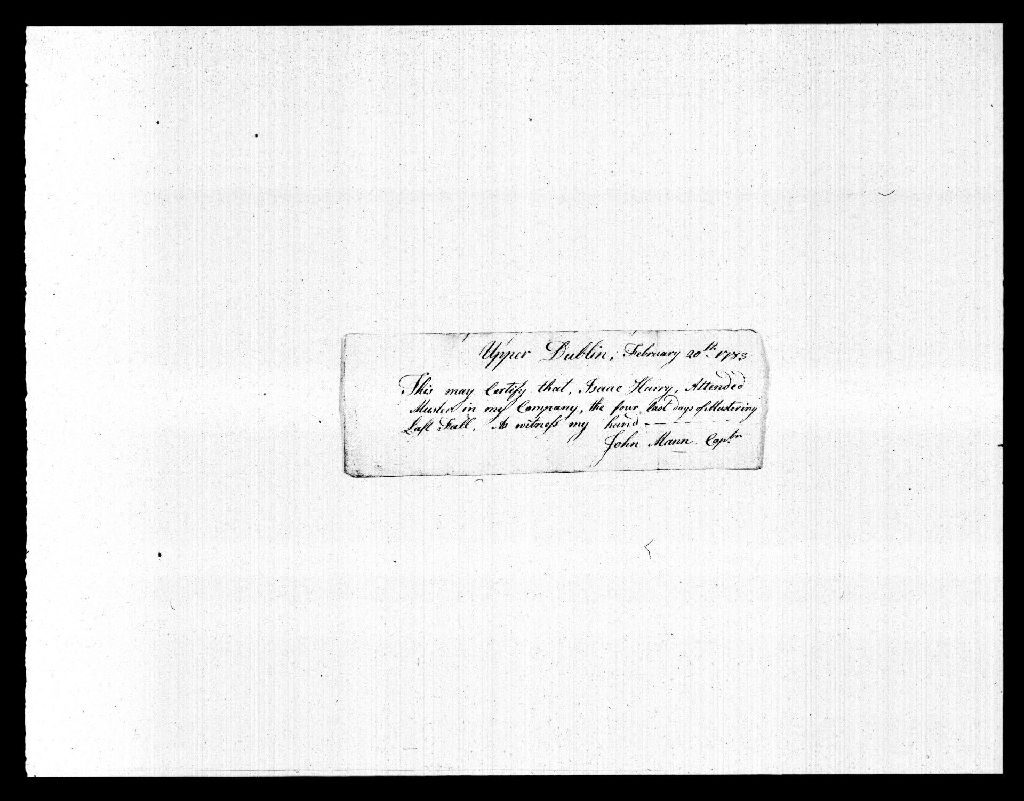 Upper Dublin, February 20th 1783
This may Certify that, Isaac Harry, Attended
Muster in my Company, the four last days of Mustering
Last Fall. As witness my hand
John Mann Captn